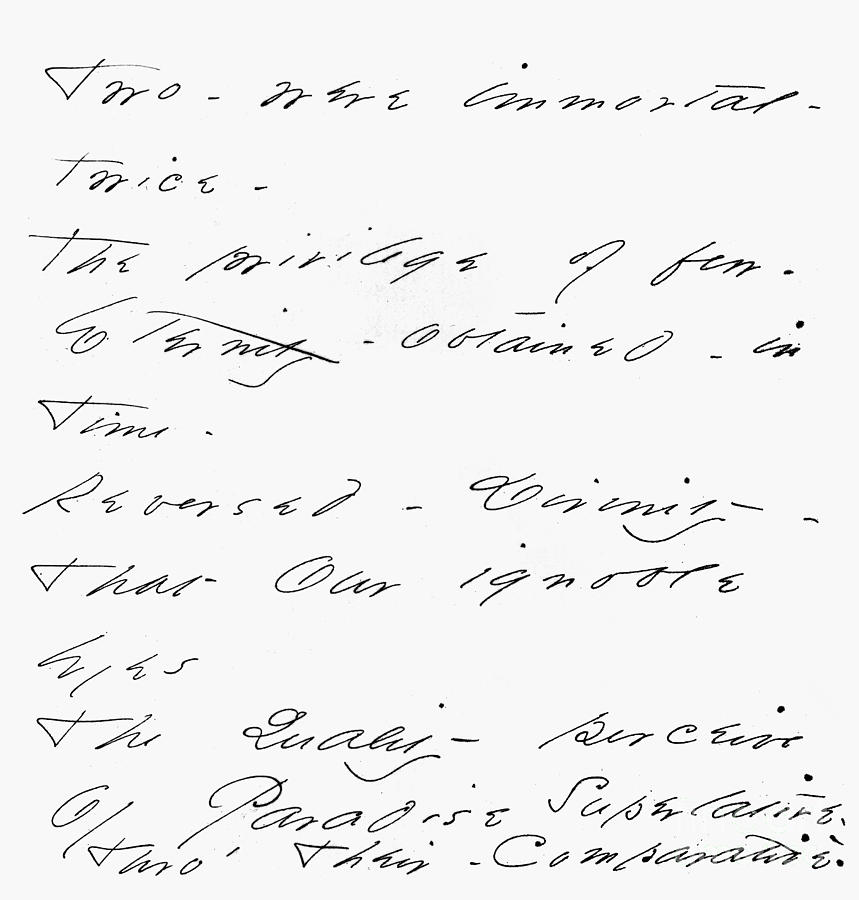 Two - were immortal -
twice -
The privilege of few -
Eternity - obtained - in
Time -
Reversed - Divinity -
That Our ignoble
Eyes
The Quality - perceive
Of Paradise Superlative -
Thro' their - Comparative.